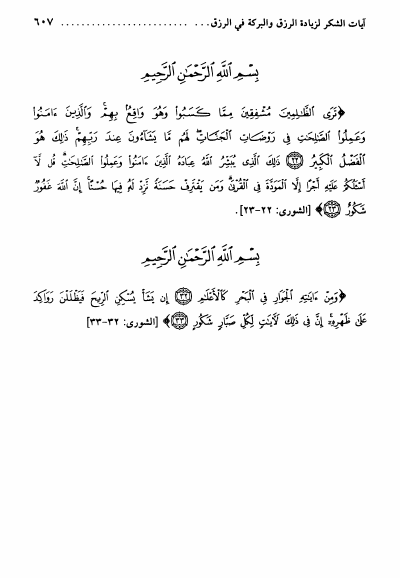 آيات الشكر لزيادة الرزق والبركة في الرزق... ........................ ٦٠٧
بِسْمِ اللَّهِ الرَّحْمَٰنِ الرَّحِيمِ
﴿تَرَى الظَّالِمِينَ مُشْفِقِينَ مِمَّا كَسَبُوا وَهُوَ وَاقِعٌ بِهِمْ ۗ وَالَّذِينَ ءَامَنُوا
وَعَمِلُوا الصَّالِحَاتِ فِي رَوْضَاتِ الْجَنَّاتِ ۖ لَهُم مَّا يَشَاءُونَ عِندَ رَبِّهِمْ ۚ ذَٰلِكَ هُوَ
الْفَضْلُ الْكَبِيرُ ﴿٢٢﴾ ذَٰلِكَ الَّذِي يُبَشِّرُ اللَّهُ عِبَادَهُ الَّذِينَ ءَامَنُوا وَعَمِلُوا الصَّالِحَاتِ ۗ قُل لَّا
أَسْئَلُكُمْ عَلَيْهِ أَجْرًا إِلَّا الْمَوَدَّةَ فِي الْقُرْبَىٰ ۗ وَمَن يَقْتَرِفْ حَسَنَةً نَّزِدْ لَهُ فِيهَا حُسْنًا ۚ إِنَّ اللَّهَ غَفُورٌ
شَكُورٌ ﴿٢٣﴾﴾ [الشورى: ٢٢-٢٣].
بِسْمِ اللَّهِ الرَّحْمَٰنِ الرَّحِيمِ
﴿وَمِنْ ءَايَاتِهِ الْجَوَارِ فِي الْبَحْرِ كَالْأَعْلَامِ ﴿٣٢﴾ إِن يَشَأْ يُسْكِنِ الرِّيحَ فَيَظْلَلْنَ رَوَاكِدَ
عَلَىٰ ظَهْرِهِ ۚ إِنَّ فِي ذَٰلِكَ لَآيَاتٍ لِّكُلِّ صَبَّارٍ شَكُورٍ ﴿٣٣﴾﴾ [الشورى: ٣٢-٣٣]